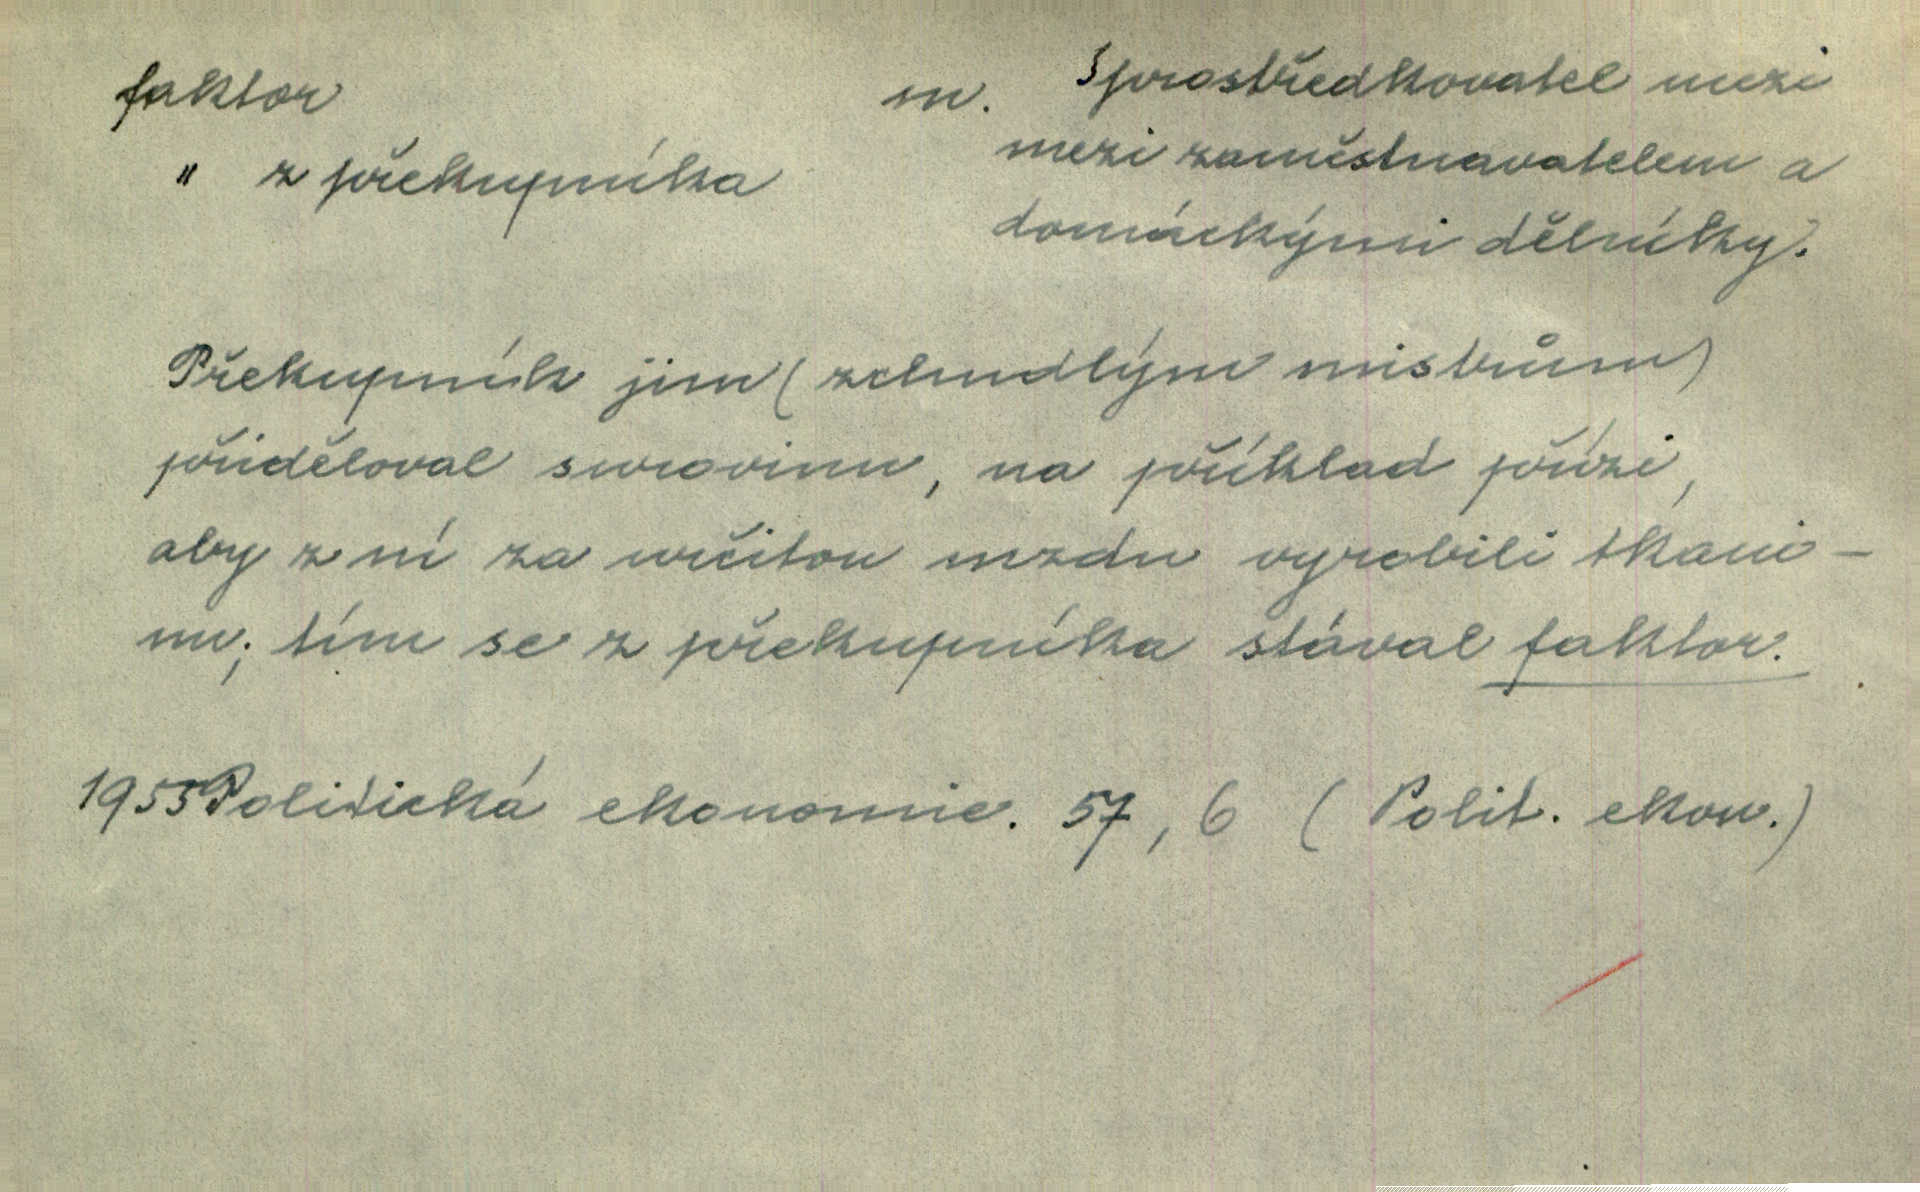 faktor m. Sprostředkovatel mezi
" z překupníka mezi zaměstnavatelem a
domáckými dělníky.
Překupník jim (zchudlým mistrům)
přiděloval surovinu, na příklad přízi,
aby z ní za určitou mzdu vyrobili tkani-
nu; tím se z překupníka stával faktor.
1953 Politická ekonomie. 57, 6 (Polit. ekon.)